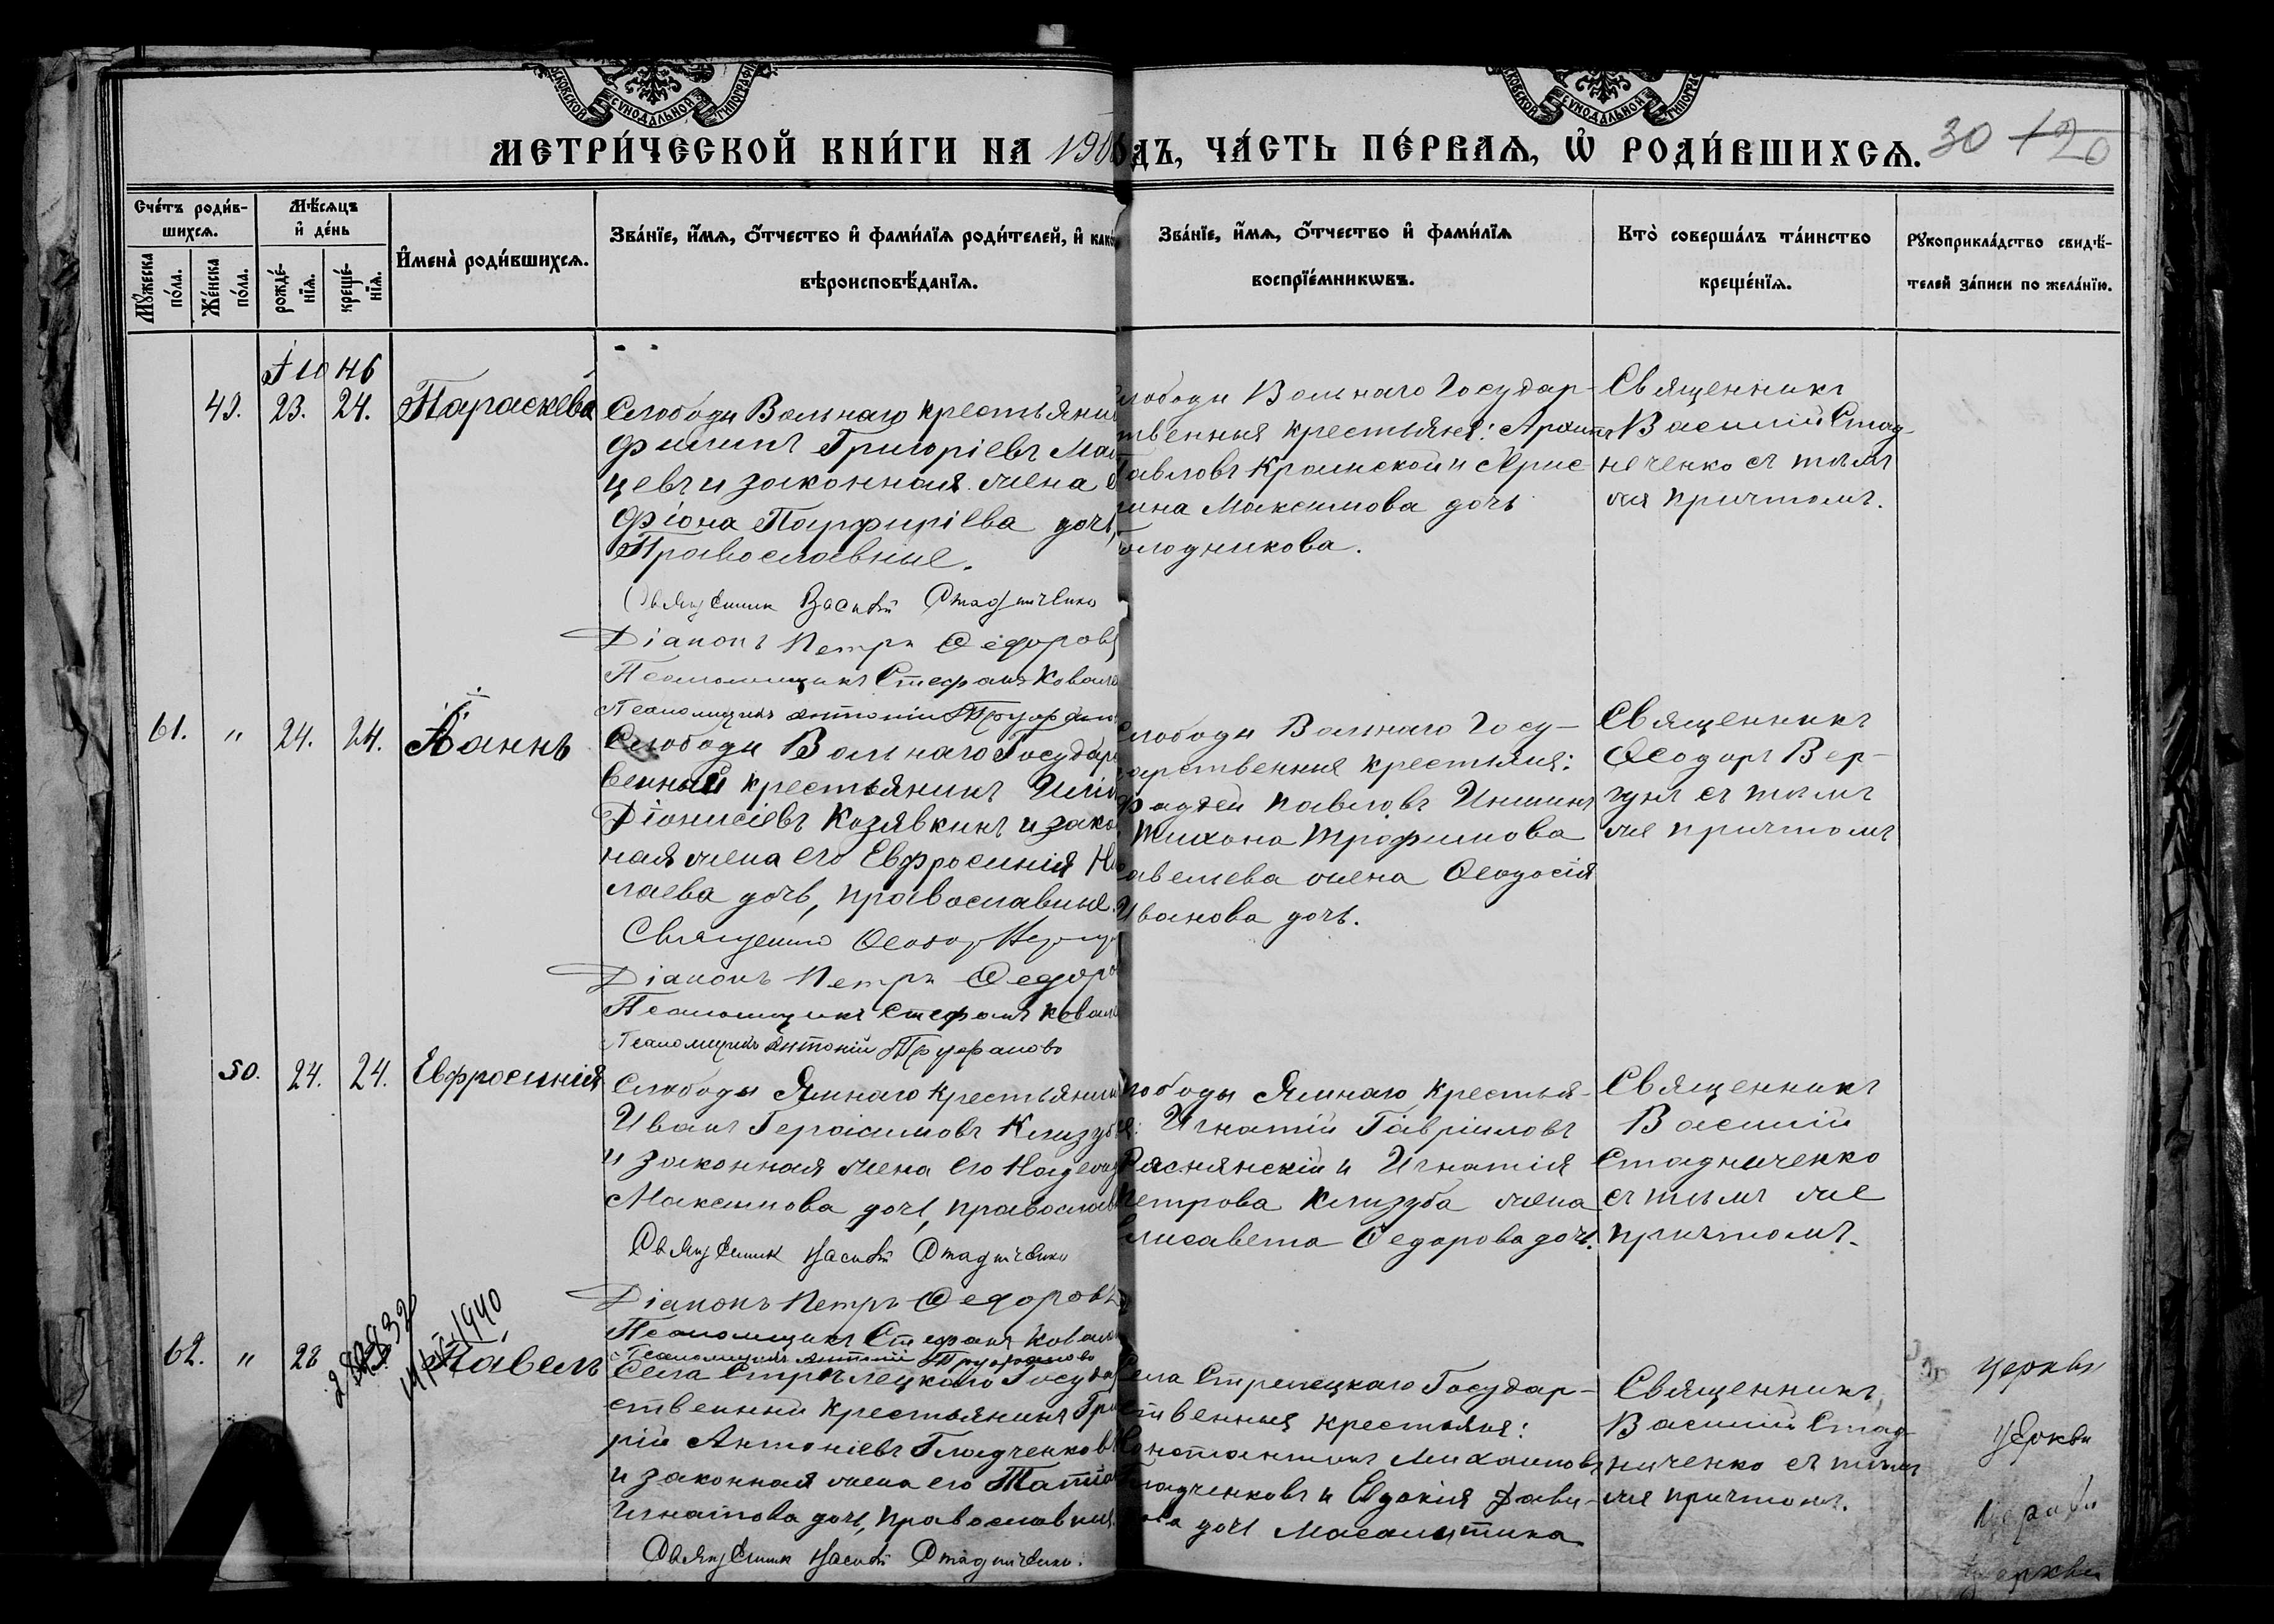 МОСКОВСКОЙ СУНОДАЛЬНОЙ ТИПОГРАФІ
СКОВСКОЙ СУНОДАЛЬНОЙ ТИПОГРАФІ
МЕТРИ́ЧЕСКОЙ КНИ́ГИ НА 190
ДЪ, ЧА́СТЬ ПЕ́РВАѦ, Ѡ҆ РОДИ́ВШИХСѦ.
30 120
Сче́тъ роди́в-
шихсѧ.
Мꙋ́жеска по́ла.
Же́нска по́ла.
Мѣ́сѧцъ
и҆ де́нь
рожде́-
нїѧ.
креще́-
нїѧ.
И҆мена̀ роди́вшихсѧ.
Зва́нїе, и҆́мѧ, ѻ҆́тчество и҆ фами́лїѧ роди́телей, и҆ како
вѣроисповѣ́данїѧ.
Зва́нїе, и҆́мѧ, ѻ҆́тчество и҆ фами́лїѧ
воспрїе́мникѡвъ.
Кто̀ соверша́лъ та́инство
креще́нїѧ.
Рꙋкоприкла́дство свидѣ́-
телей за́писи по жела́нїю.
49. 23. 24. Параскева
Слободы Вольнаго крестьянин
Филиппъ Григоріевъ Ма
цевъ и законная жена е
Фіона Порфиріева дочь,
Православные.
Священник Василій Стадниченко
Діаконъ Петръ Ѳедоровъ
Псаломщикъ Стефанъ Ковале
Псаломщикъ Антоній Труфано
лободы Вольнаго Государ-
твенныя крестьяня: Архипъ
Павловъ и Хрис-
тина Максимова дочь
олодникова.
Священникъ
Василій Стад-
ниченко съ тѣмъ
же причтомъ.
61. " 24. 24. Іоаннъ
Слободы Вольнаго Государс
венный крестьянинъ
Діонисіевъ Козявкинъ и зако
ная жена его Евфросинія Ни
лаева дочь, православные.
Священник Ѳеодор
Діаконъ Петръ Ѳедоро
Псаломщикъ Стефанъ Ковале
Псаломщикъ Антоній Труфановъ
лободы Вольнаго Госу-
дарственныя крестьяня:
Фаддей Павловъ
Тихона Трофимова
авельева жена Ѳеодосія
Иванова дочь.
Священникъ
Ѳеодоръ Вер-
гунъ съ тѣмъ
же причтомъ
50. 24. 24. Евфросинія
Слободы Ямнаго крестьянин
Иванъ Герасимовъ Клизуб
и законная жена его Надежд
Максимова дочь, православ
Священник Василій Стадниченко
Діаконъ Петръ Ѳедоровъ
Псаломщикъ Стефанъ Ковал
Псаломщикъ Антоній Труфановъ
лободы Ямнаго крестья-
не: Игнатій Гавріиловъ
Яснянскій и Игнатія
Петрова Клизуба жена
Елисавета Ѳедорова дочь.
Священникъ
Василій
Стадниченко
съ тѣмъ же
причтомъ.
62. " 28 Павелъ
1940
Села Стрѣлецкаго Государ
ственный крестьянинъ Гри
рій Антоніевъ Гладченковъ
и законная жена его Татіа
Игнатова дочь, православныя.
Священник Василій Стадниченко.
Села Стрелецкаго Государ-
ственныя крестьяня:
Константинъ Михаиловъ
Гладченковъ и Евдокія Дави-
дова дочь
Священникъ
Василій Стад-
ниченко съ тѣмъ
же причтомъ.
церкви
церкви
церкви
церкви